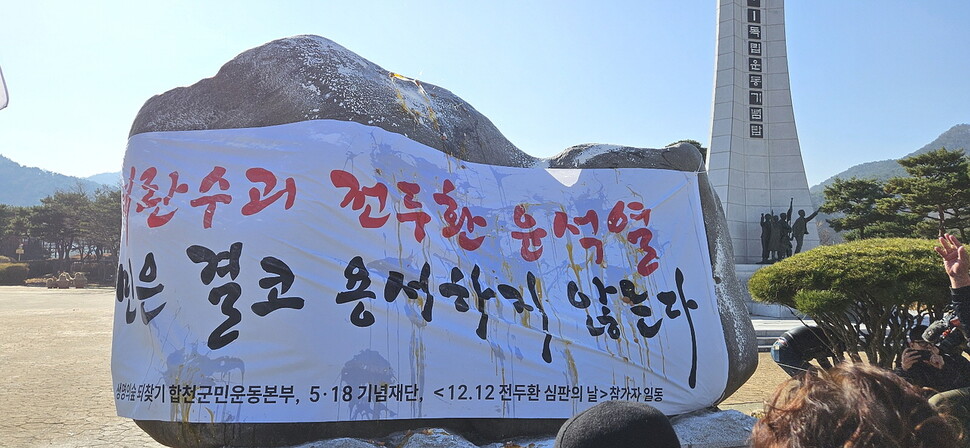 3·1독립운동기념탑
내란수괴 전두환 윤석열
국민은 결코 용서하지 않는다
생명의숲 되찾기 합천군민운동본부, 5·18 기념재단, <12.12 전두환 심판의 날> 참가자 일동